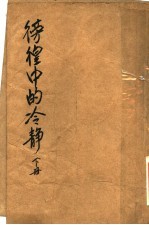 徬徨中的冷静
下册